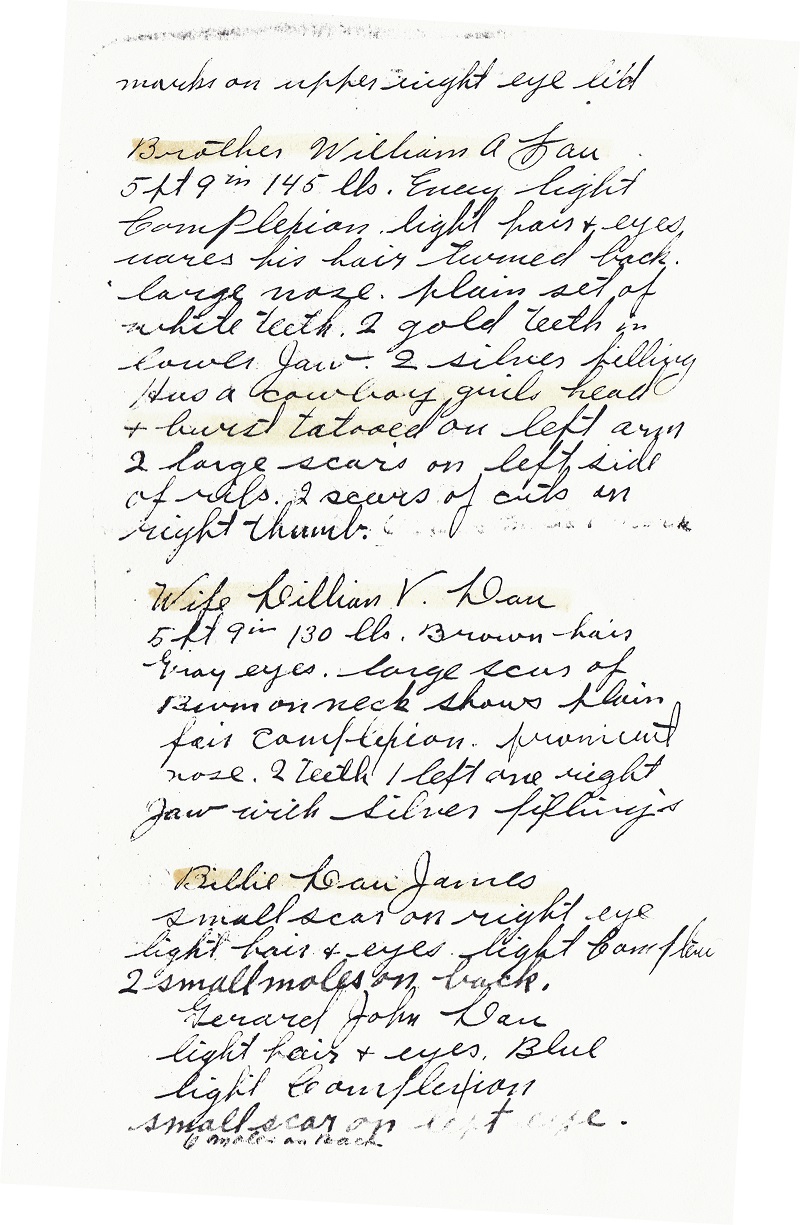 marks on upper right eye lid
Brother William A Dau
5 ft 9 in 145 lbs. light
Complexion. light hair & eyes,
wares his hair turned back.
large nose. plain set of
white teeth. 2 gold teeth in
lower Jaw. 2 silver filling
Has a cowboy girls head
& burst tatooed on left arm
2 large scars on left side
of ribs. 2 scars of cuts on
right thumb.
Wife Lillian V. Dau
5 ft 9 in 130 lbs. Brown hair
Gray eyes. large scar of
Burn on neck shows plain
fair complexion. prominent
nose. 2 teeth 1 left one right
Jaw with silver filling's
Billie Dau James
small scar on right eye
light hair & eyes light
2 small moles on back.
Gerard John Dau
light hair & eyes. Blue
light Complexion
small scar on left eye.
6 moles on Back